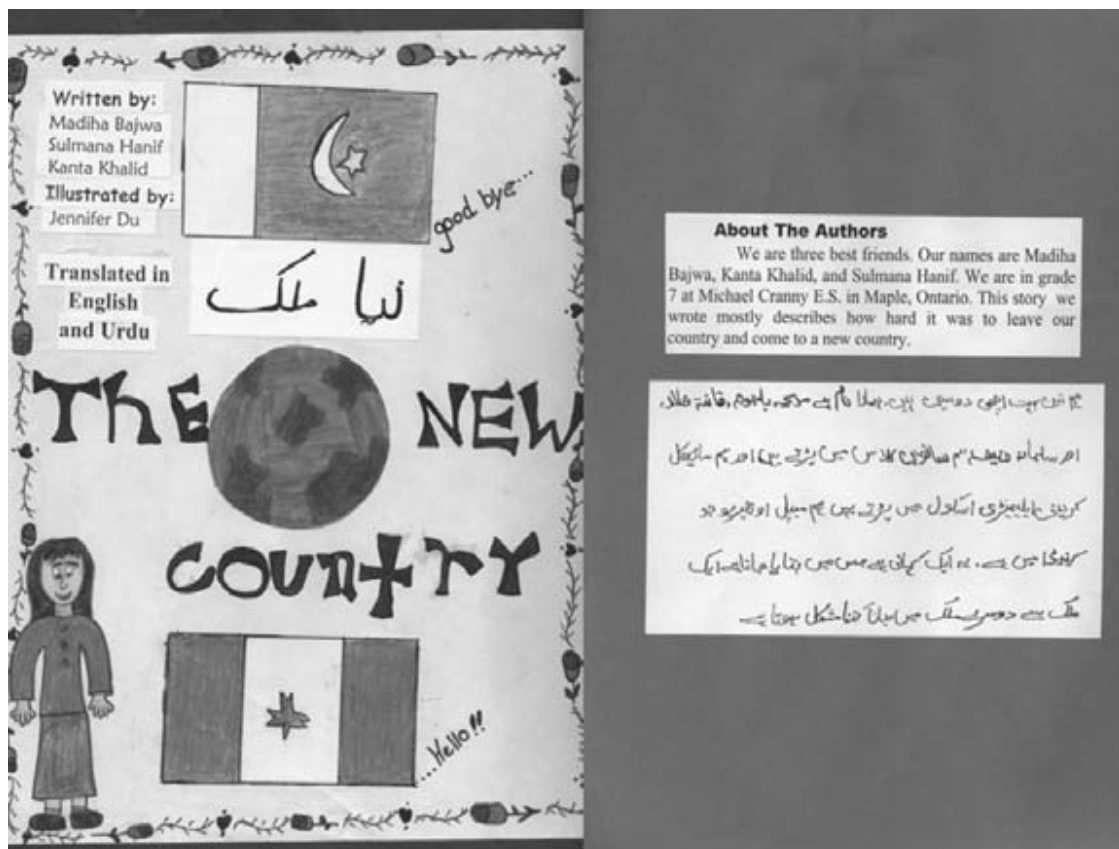 Written by:
Madiha Bajwa
Sulmana Hanif
Kanta Khalid
Illustrated by:
Jennifer Du
Translated in
English
and Urdu
good bye...
نیا ملک
The New
Country
...Hello!!
About The Authors
We are three best friends. Our names are Madiha
Bajwa, Kanta Khalid, and Sulmana Hanif. We are in grade
7 at Michael Cranny E.S. in Maple, Ontario. This story we
wrote mostly describes how hard it was to leave our
country and come to a new country.
ہم تین بہت اچھی دوستیں ہیں۔ ہمارا نام ہے
اور کلاس میں پڑتے ہیں اور ہم مائیکل
کرینی میں پڑتے ہیں ہم میپل اونٹیریو جو
میں ہے۔ یہ ایک کہانی ہے جس میں بتایا جاتا ہے ایک
ملک سے دوسرے ملک میں جانا کتنا مشکل ہوتا ہے